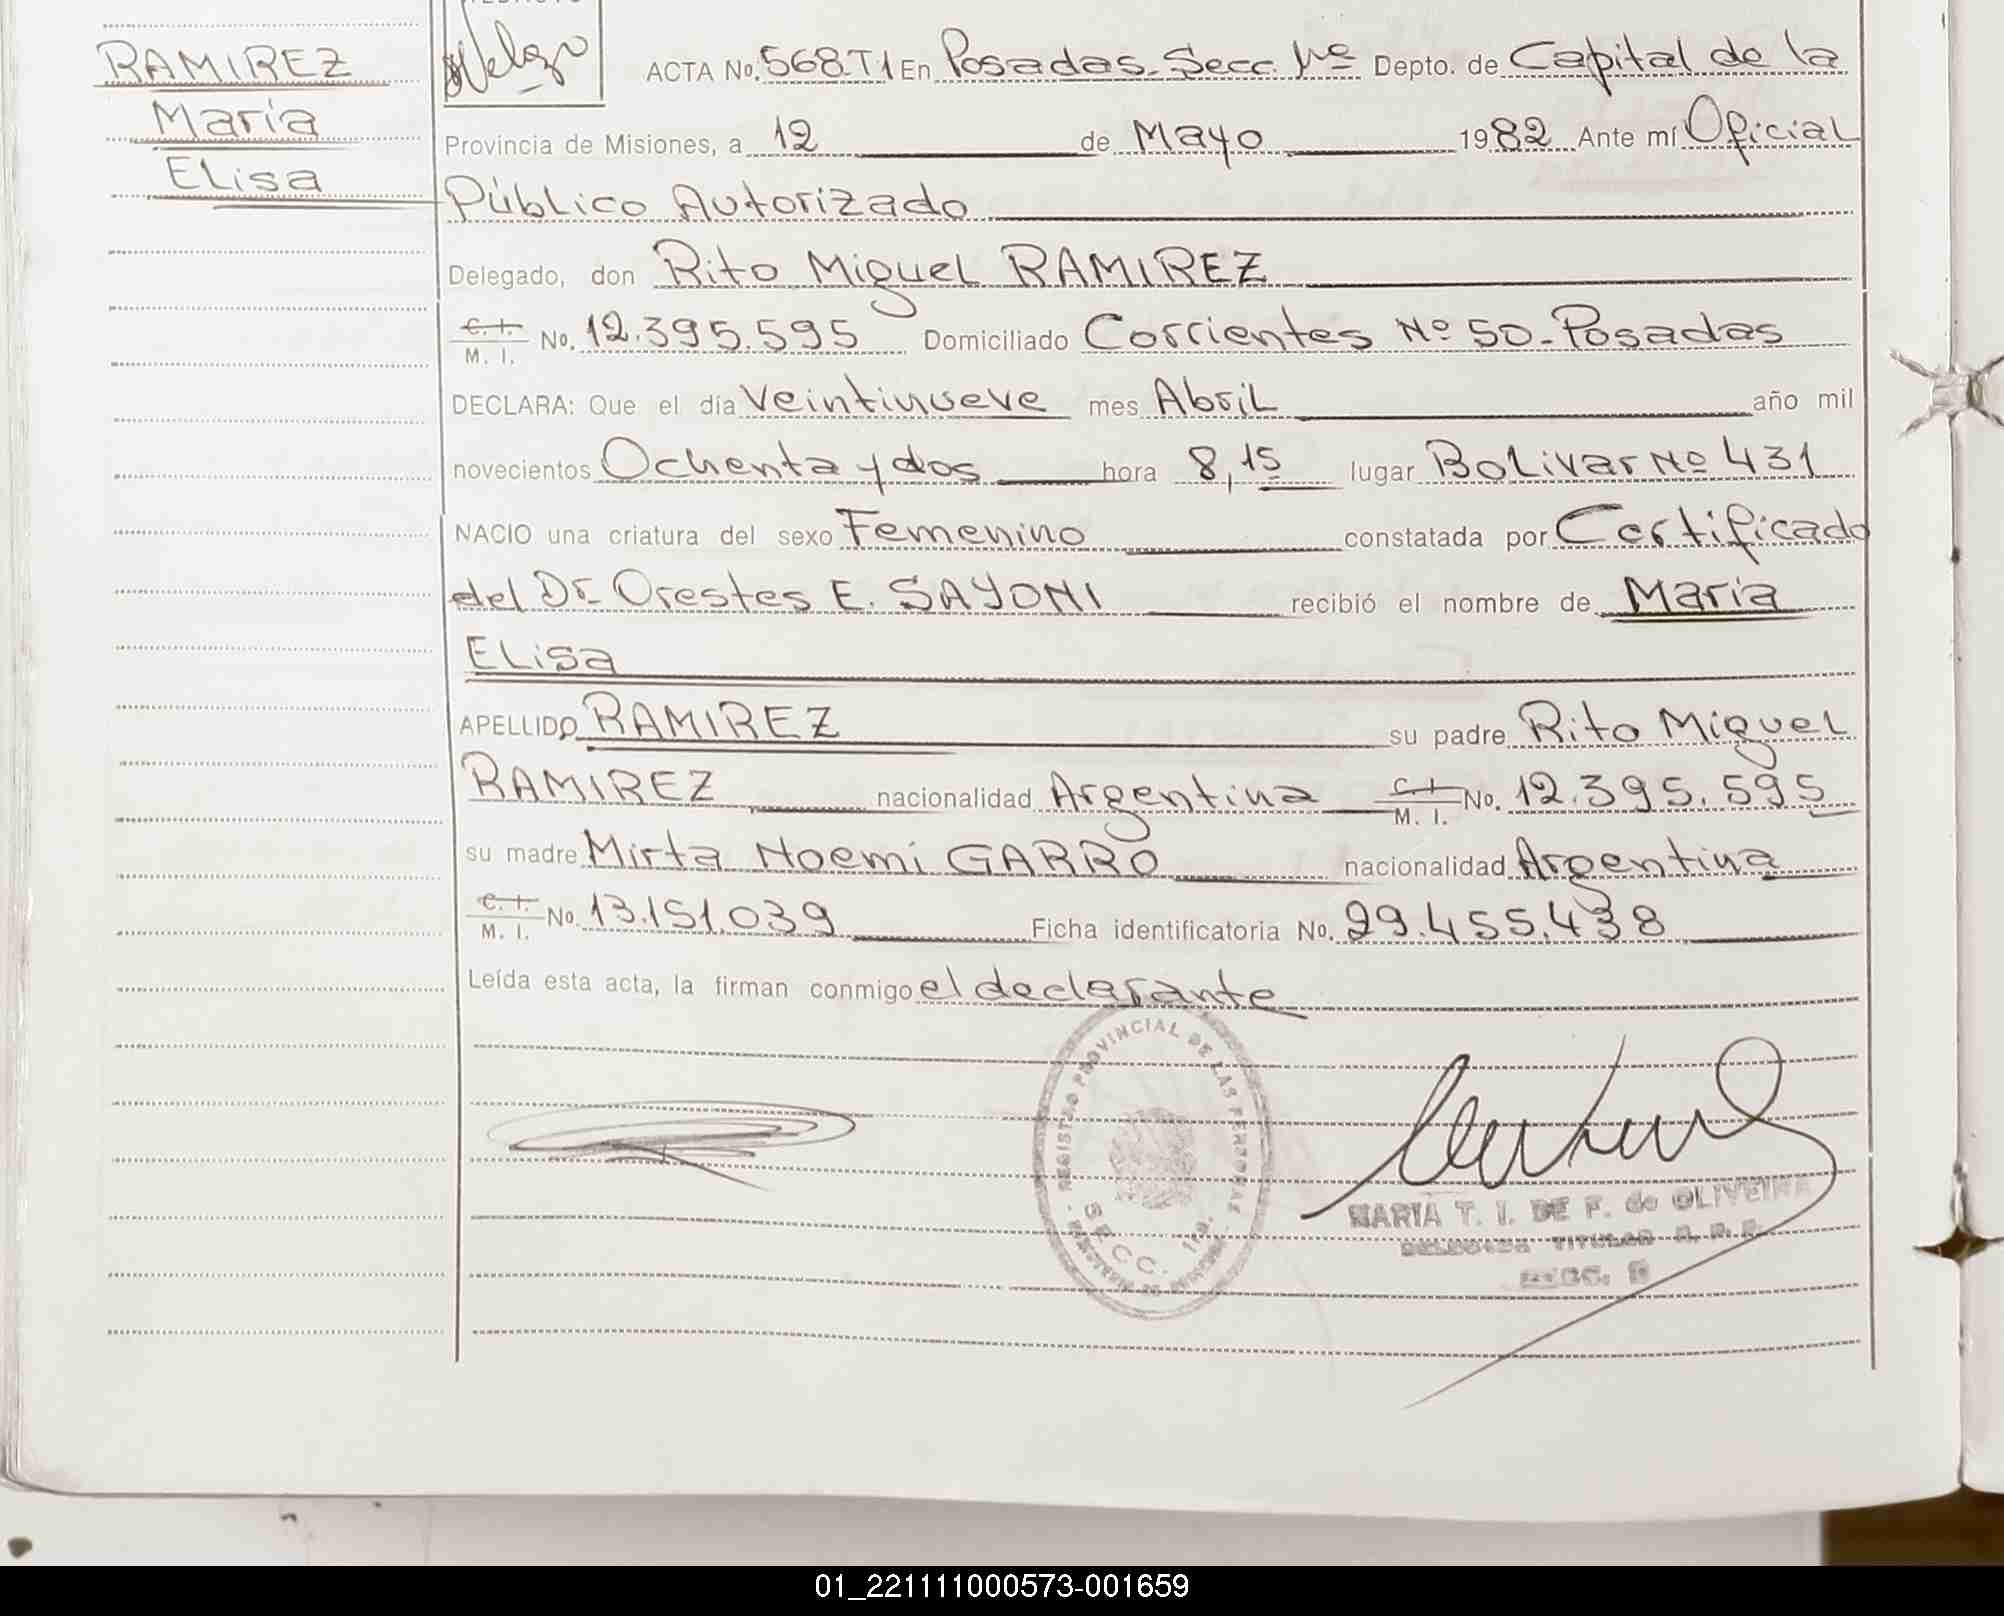 RAMIREZ
María
ELisa
ACTA No. 568.T1 En Posadas. Secc. 1ra Depto. de Capital de la
Provincia de Misiones, a 12 de Mayo 1982 Ante mí Oficial
Público Autorizado
Delegado, don Rito Miguel RAMIREZ
C. I.
M. I. No. 12.395.595 Domiciliado Corrientes Nº 50-Posadas
DECLARA: Que el día Veintinueve mes Abril año mil
novecientos Ochenta y dos hora 8,15 lugar Bolivar Nº 431
NACIO una criatura del sexo Femenino constatada por Certificado
del Dr. Orestes E. SAYONI recibió el nombre de María
ELisa
APELLIDO RAMIREZ su padre Rito Miguel
RAMIREZ nacionalidad Argentina C. I. M. I. No. 12.395.595
su madre Mirta Noemí GARRO nacionalidad Argentina
C. I.
M. I. No. 13.151.039 Ficha identificatoria No. 29.455.438
Leída esta acta, la firman conmigo el declarante
REGISTRO PROVINCIAL DE LAS PERSONAS
SECC. 1ra.
MARIA T. I. DE F. de OLIVEIRA
DELEGADA TITULAR R. P. P.
01_221111000573-001659